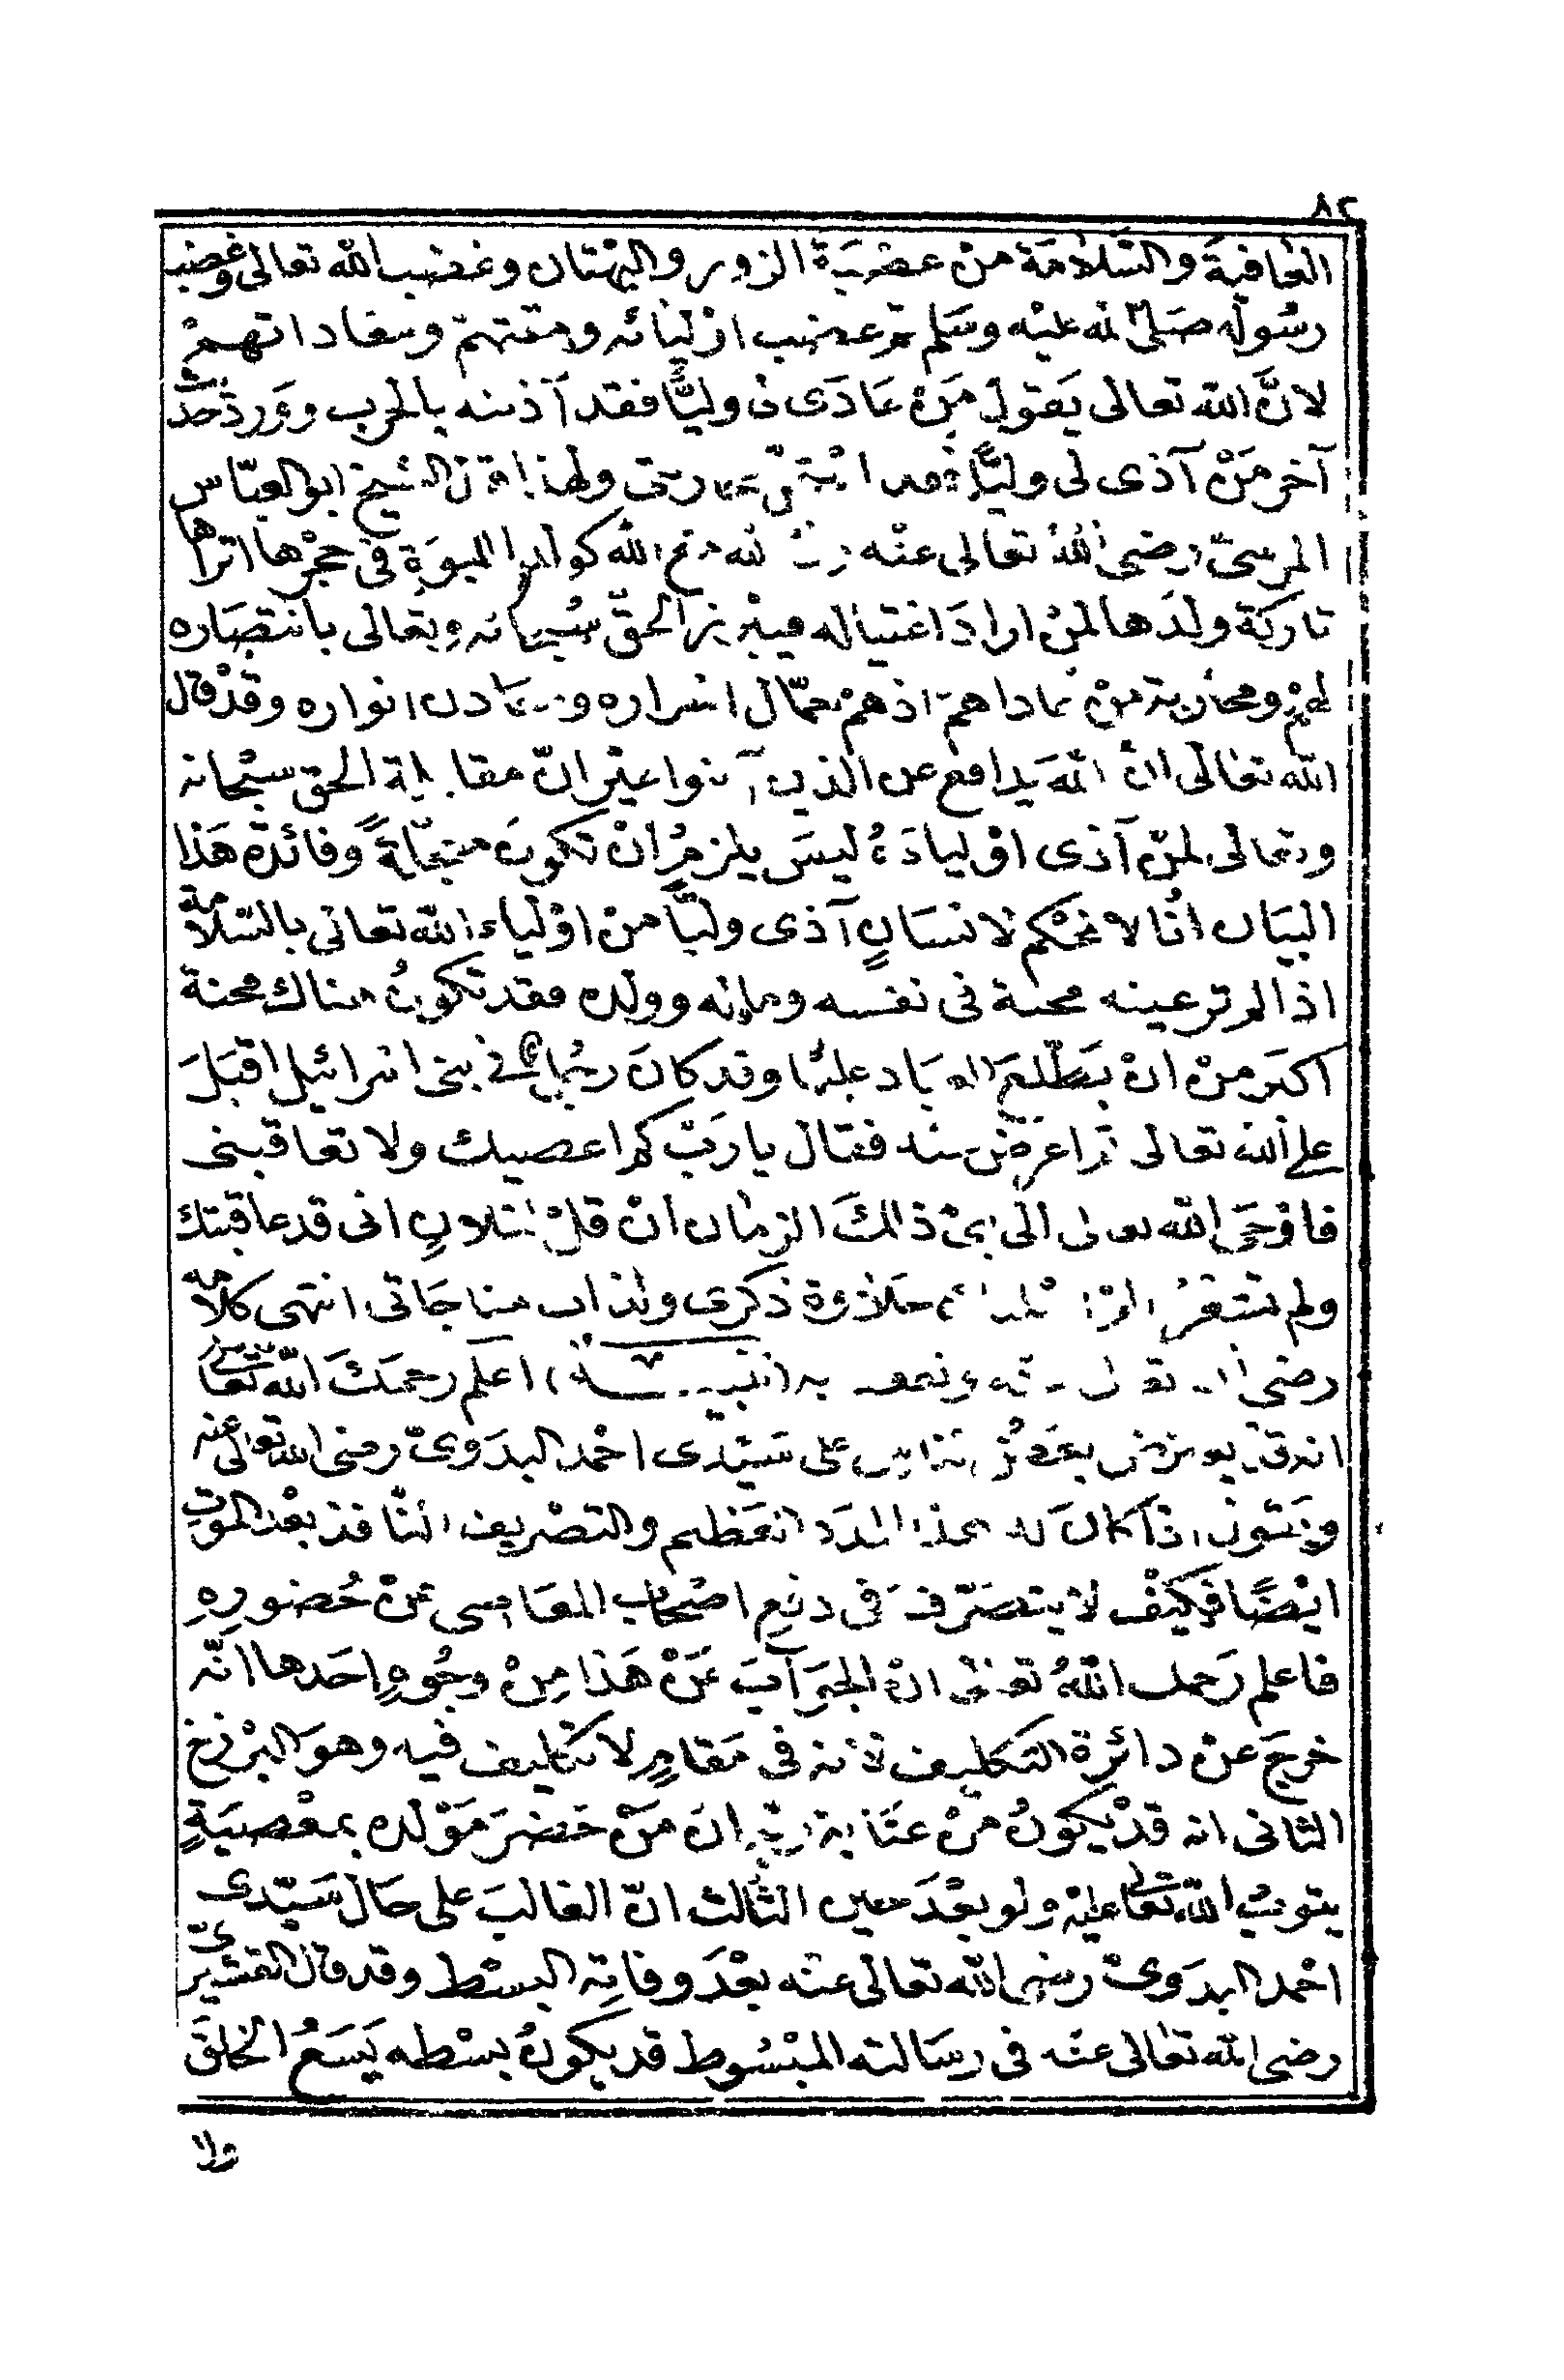 ٨٢
العافية والسّلامة من عصبة الزور والبهتان وغضب الله تعالى وغضب
رسوله صلى الله عليه وسلم وغضب اوليائه ومقتهم ومعاداتهم
لانّ الله تعالى يقول من عادى لى وليًّا فقد آذنته بالحرب وورد حديث
آخر من آذى لى وليًّا فقد استحق محاربتى ولهذا قال الشيخ ابو العبّاس
المرسىّ رضى الله تعالى عنه ولىّ الله مع الله كولد اللبوة فى حجرها اتراها
تاركة ولدها لمن اراد اغتياله فيبرز الحقّ سبحانه وتعالى بانتصاره
لهم ومحاربة من عاداهم اذ هم حمّال اسراره ومعادن انواره وقد قال
الله تعالى انّ الله يدافع عن الذين آمنوا غير انّ مقابلة الحق سبحانه
وتعالى لمن آذى اولياءه ليس يلزم ان تكون معجّلةً وفائدة هذا
البيان انّا لا نحكم لانسانٍ آذى وليًّا من اولياء الله تعالى بالسّلامة
اذا لم تر عينه محنة فى نفسه وماله وولده فقد تكون هناك محنة
اكبر من ان يطّلع العباد عليها وقد كان رجل فى بنى اسرائيل اقبل
على الله تعالى ثم اعرض عنه فقال يا ربّ كم اعصيك ولا تعاقبنى
فاوحى الله تعالى الى نبىّ ذلك الزمان ان قل لفلانٍ انى قد عاقبتك
ولم تشعر الم اسلبك حلاوة ذكرى ولذاذ مناجاتى انتهى كلامه
رضى الله تعالى عنه ونفع به (تنبيــــه) اعلم رحمك الله تعالى
انه قد يعترض بعض الناس على سيّدى احمد البدوىّ رضى الله تعالى عنه
ويقول اذا كان له هذا المدد العظيم والتصريف النّافذ بعد الموت
ايضًا فكيف لا يتصرّف فى دفع اصحاب المعاصى عن حضوره
فاعلم رحمك الله تعالى انّ الجواب عن هذا من وجوهٍ احدها انّه
خرج عن دائرة التكليف لانه فى مقامٍ لا تكليف فيه وهو البرزخ
الثانى انه قد يكون من عناية ربّه ان من حضر مولده بمعصيةٍ
يتوب الله تعالى عليه ولو بعد حين الثالث انّ الغالب على حال سيّدى
احمد البدوىّ رضى الله تعالى عنه بعد وفاته البسط وقد قال القشيرىّ
رضى الله تعالى عنه فى رسالته المبسوط قد يكون بسطه يسع الخلق
ولا